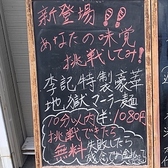 新登場!!
あなたの味覚
挑戦してみ!
李記特製豪華
地獄マーラー麺
10分以内 1080円
挑戦できたら
無料 失敗したら